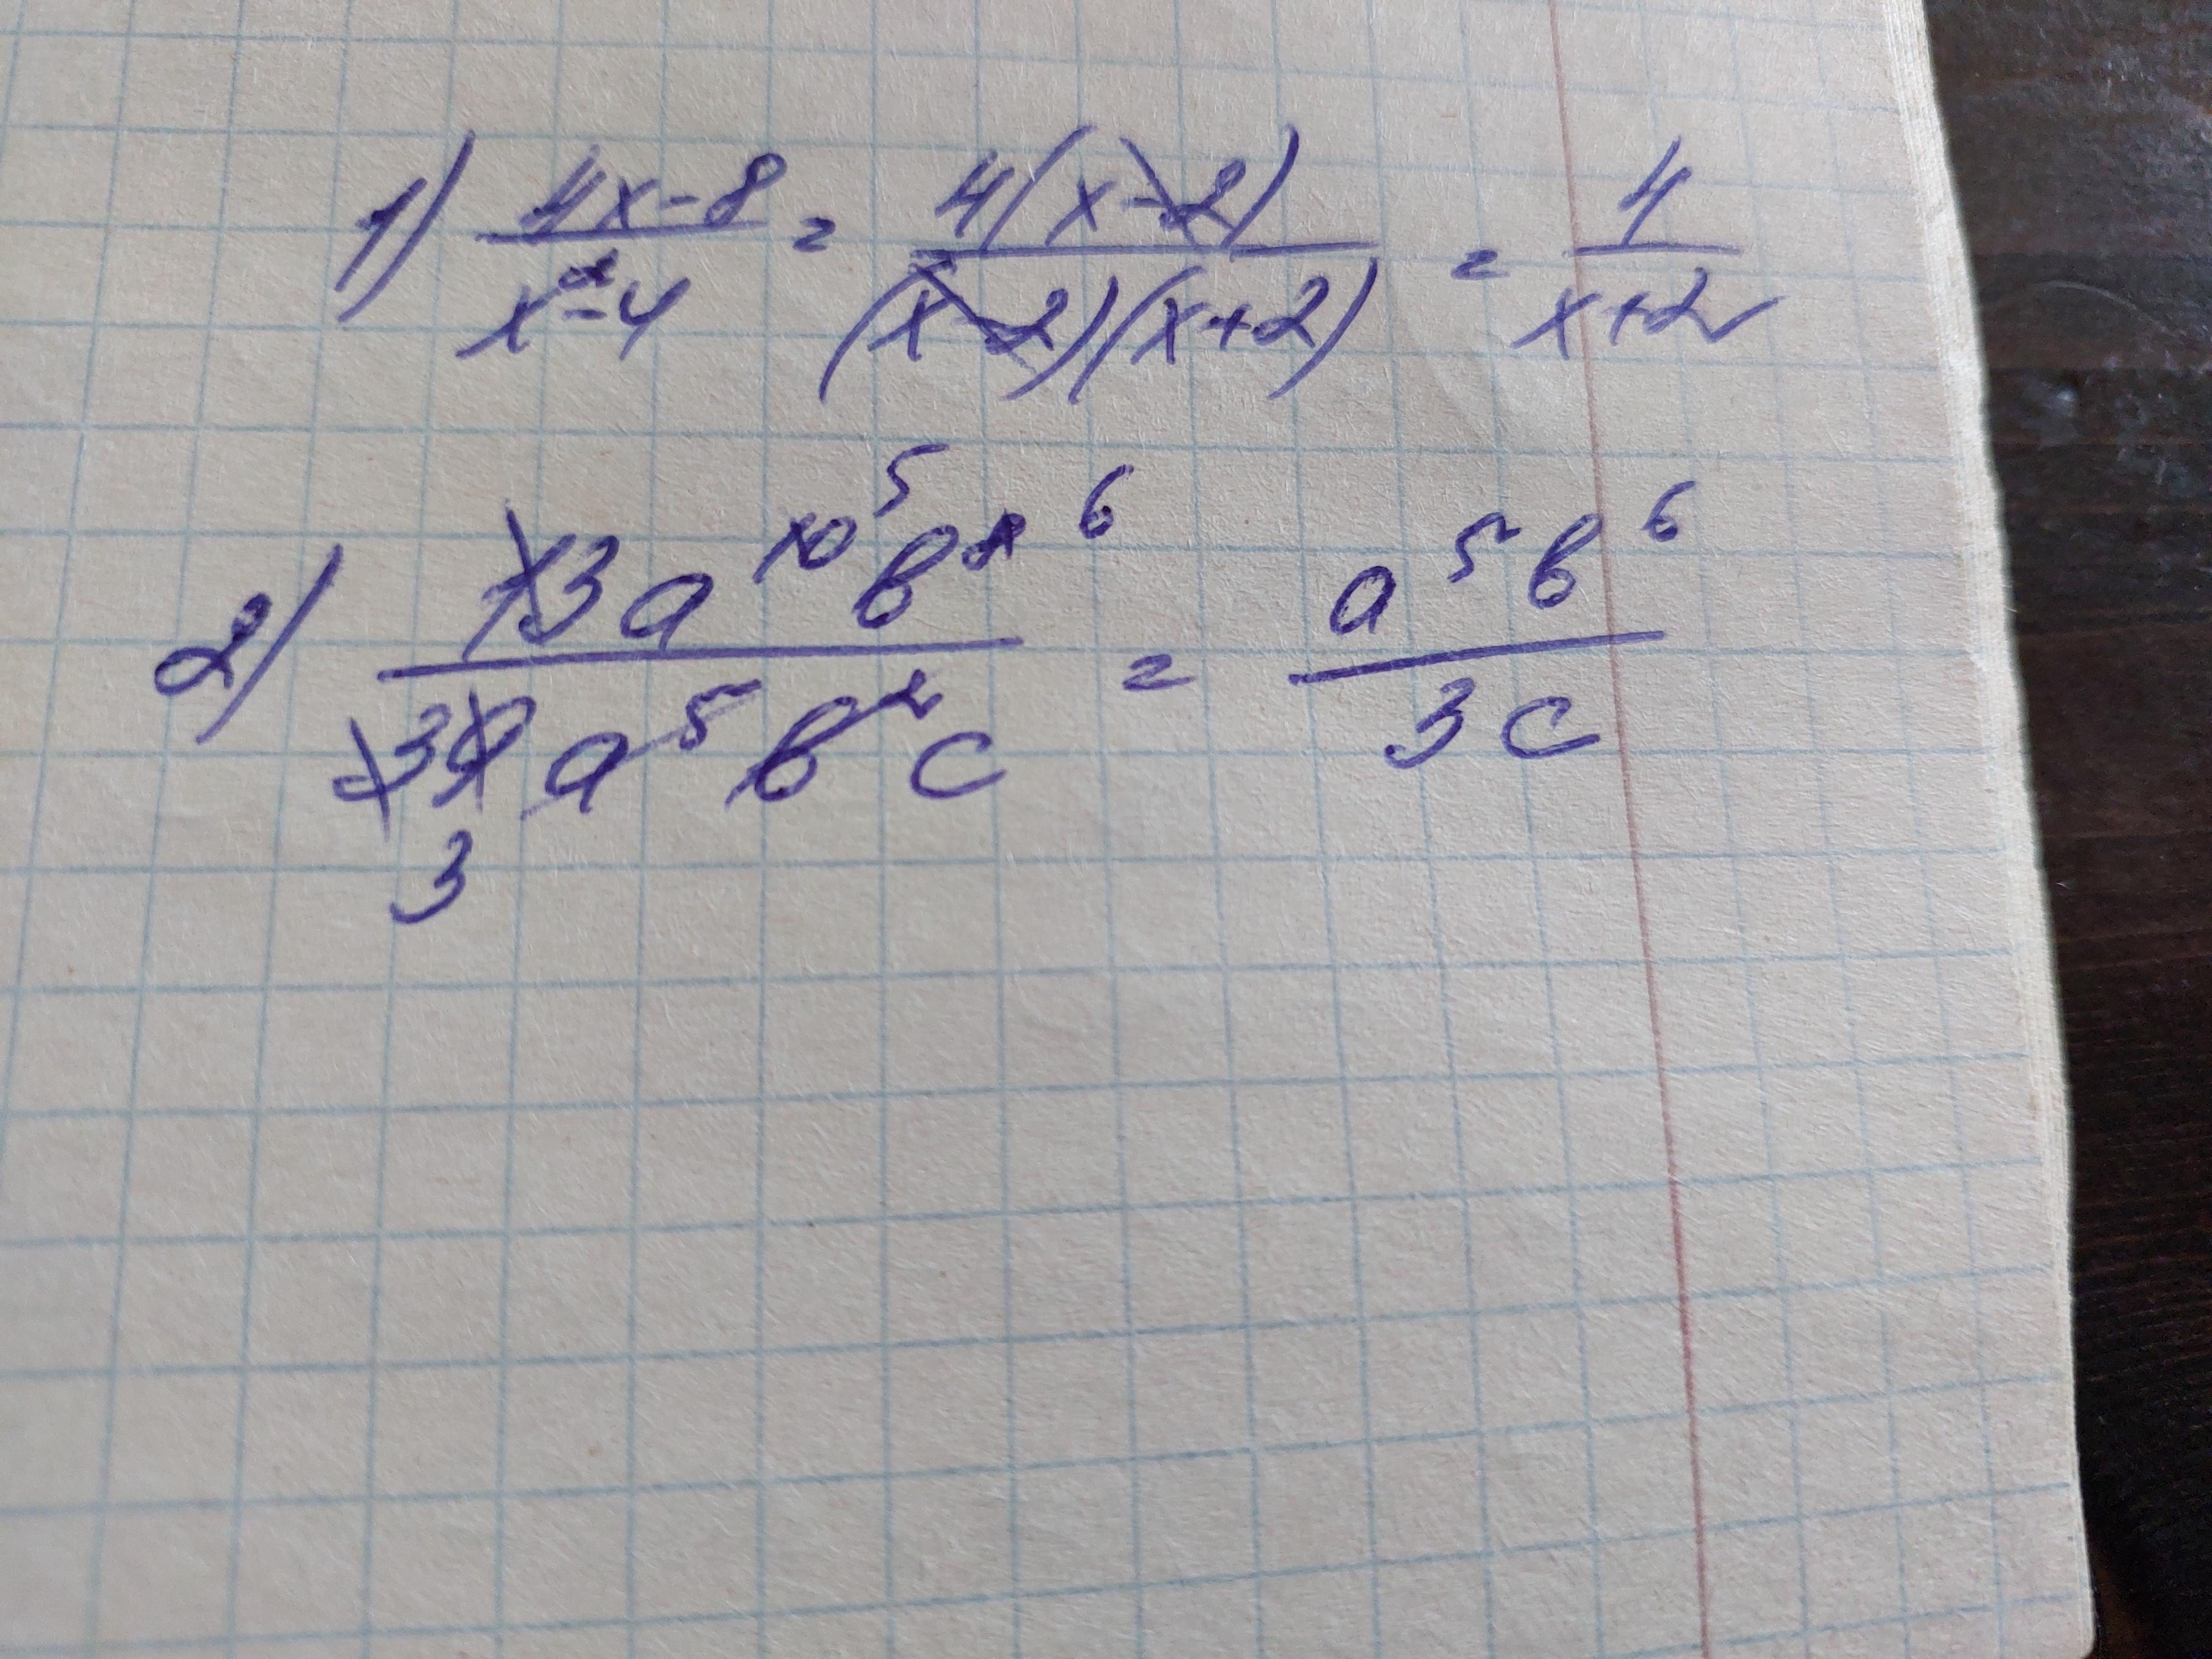 1) (4x-8)/(x²-4) = 4(x-2)/((x-2)(x+2)) = 4/(x+2)
2) 13a¹⁰ ⁵ b⁸ ⁶ / 39a⁵b²c = a⁵b⁶/3c
3